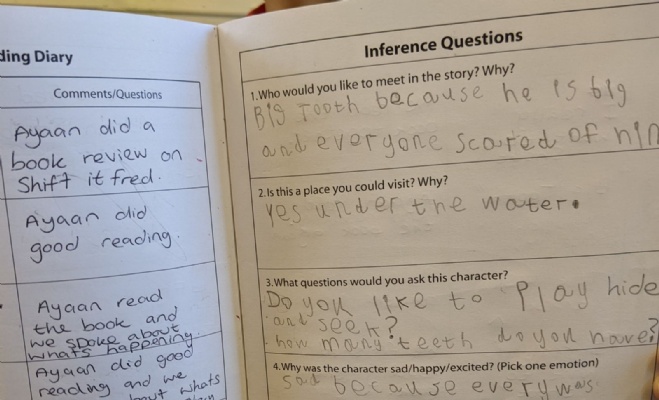 ding Diary
Comments/Questions
Ayaan did a
book review on
Shift it fred.
Ayaan did
good reading.
Ayaan read
the book and
we spoke about
whats happening.
Ayaan did good
reading and we
whats
Inference Questions
1.Who would you like to meet in the story? Why?
Big Tooth because he is big
and everyone scared of him
2.Is this a place you could visit? Why?
yes under the water.
3.What questions would you ask this character?
Do you like to Play hide
and seek?
how many teeth do you have?
4.Why was the character sad/happy/excited? (Pick one emotion)
Sad because every was